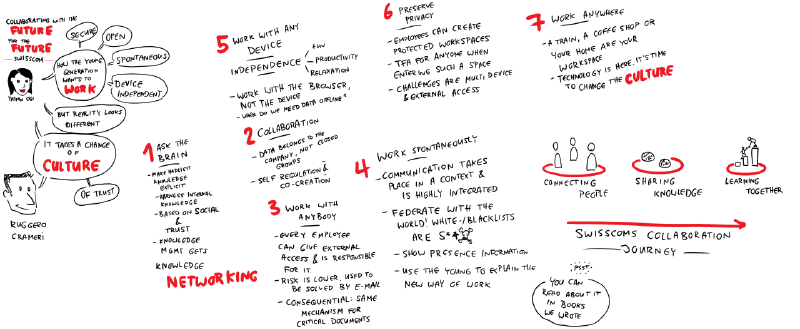 COLLABORATING WITH THE
FUTURE
FOR THE
FUTURE
SWISSCOM
SECURE
OPEN
SPONTANEOUS
DEVICE
INDEPENDENT
HOW THE YOUNG
GENERATION
WANTS TO
WORK
BUT REALITY LOOKS
DIFFERENT
IT TAKES A CHANGE
OF
CULTURE
OF TRUST
RUGGERO
CRAMERI
1 ASK THE
BRAIN
- MAKE IMPLICIT
KNOWLEDGE
EXPLICIT
- HARNESS INTERNAL
KNOWLEDGE
- BASED ON SOCIAL
& TRUST
- KNOWLEDGE
MGMT GETS
KNOWLEDGE
NETWORKING
5 WORK WITH ANY
DEVICE
INDEPENDENCE
FUN
PRODUCTIVITY
RELAXATION
- WORK WITH THE BROWSER,
NOT THE DEVICE
- WHEN DO WE NEED DATA OFFLINE?
2 COLLABORATION
- DATA BELONGS TO THE
COMPANY, NOT CLOSED
GROUPS
- SELF REGULATION &
CO-CREATION
3 WORK WITH
ANYBODY
- EVERY EMPLOYEE
CAN GIVE EXTERNAL
ACCESS & IS RESPONSIBLE
FOR IT
- RISK IS LOWER, USED TO
BE SOLVED BY E-MAIL
- CONSEQUENTIAL: SAME
MECHANISM FOR
CRITICAL DOCUMENTS
6 PRESERVE
PRIVACY
- EMPLOYEES CAN CREATE
PROTECTED WORKSPACES
- TFA FOR ANYONE WHEN
ENTERING SUCH A SPACE
- CHALLENGES ARE MULTI DEVICE
& EXTERNAL ACCESS
4 WORK SPONTANEOUSLY
- COMMUNICATION TAKES
PLACE IN A CONTEXT &
IS HIGHLY INTEGRATED
- FEDERATE WITH THE
WORLD! WHITE-/BLACKLISTS
ARE S**
- SHOW PRESENCE INFORMATION
- USE THE YOUNG TO EXPLAIN THE
NEW WAY OF WORK
7 WORK ANYWHERE
- A TRAIN, A COFFEE SHOP OR
YOUR HOME ARE YOUR
WORKSPACE
- TECHNOLOGY IS HERE, IT'S TIME
TO CHANGE THE CULTURE
CONNECTING
PEOPLE
SHARING
KNOWLEDGE
LEARNING
TOGETHER
SWISSCOMS COLLABORATION
JOURNEY
PSST
YOU CAN
READ ABOUT IT
IN BOOKS
WE WROTE